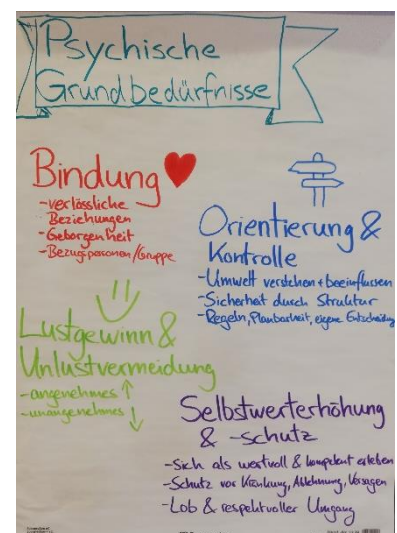 Psychische
Grundbedürfnisse
Bindung
-verlässliche
Beziehungen
-Geborgenheit
-Bezugspersonen/Gruppe
Orientierung &
Kontrolle
-Umwelt verstehen + beeinflussen
-Sicherheit durch Struktur
-Regeln, Planbarkeit, eigene Entscheidung
Lustgewinn &
Unlustvermeidung
-angenehmes ↑
-unangenehmes ↓
Selbstwerterhöhung
& -schutz
-Sich als wertvoll & kompetent erleben
-Schutz vor Kränkung, Ablehnung, Versagen
-Lob & respektvoller Umgang